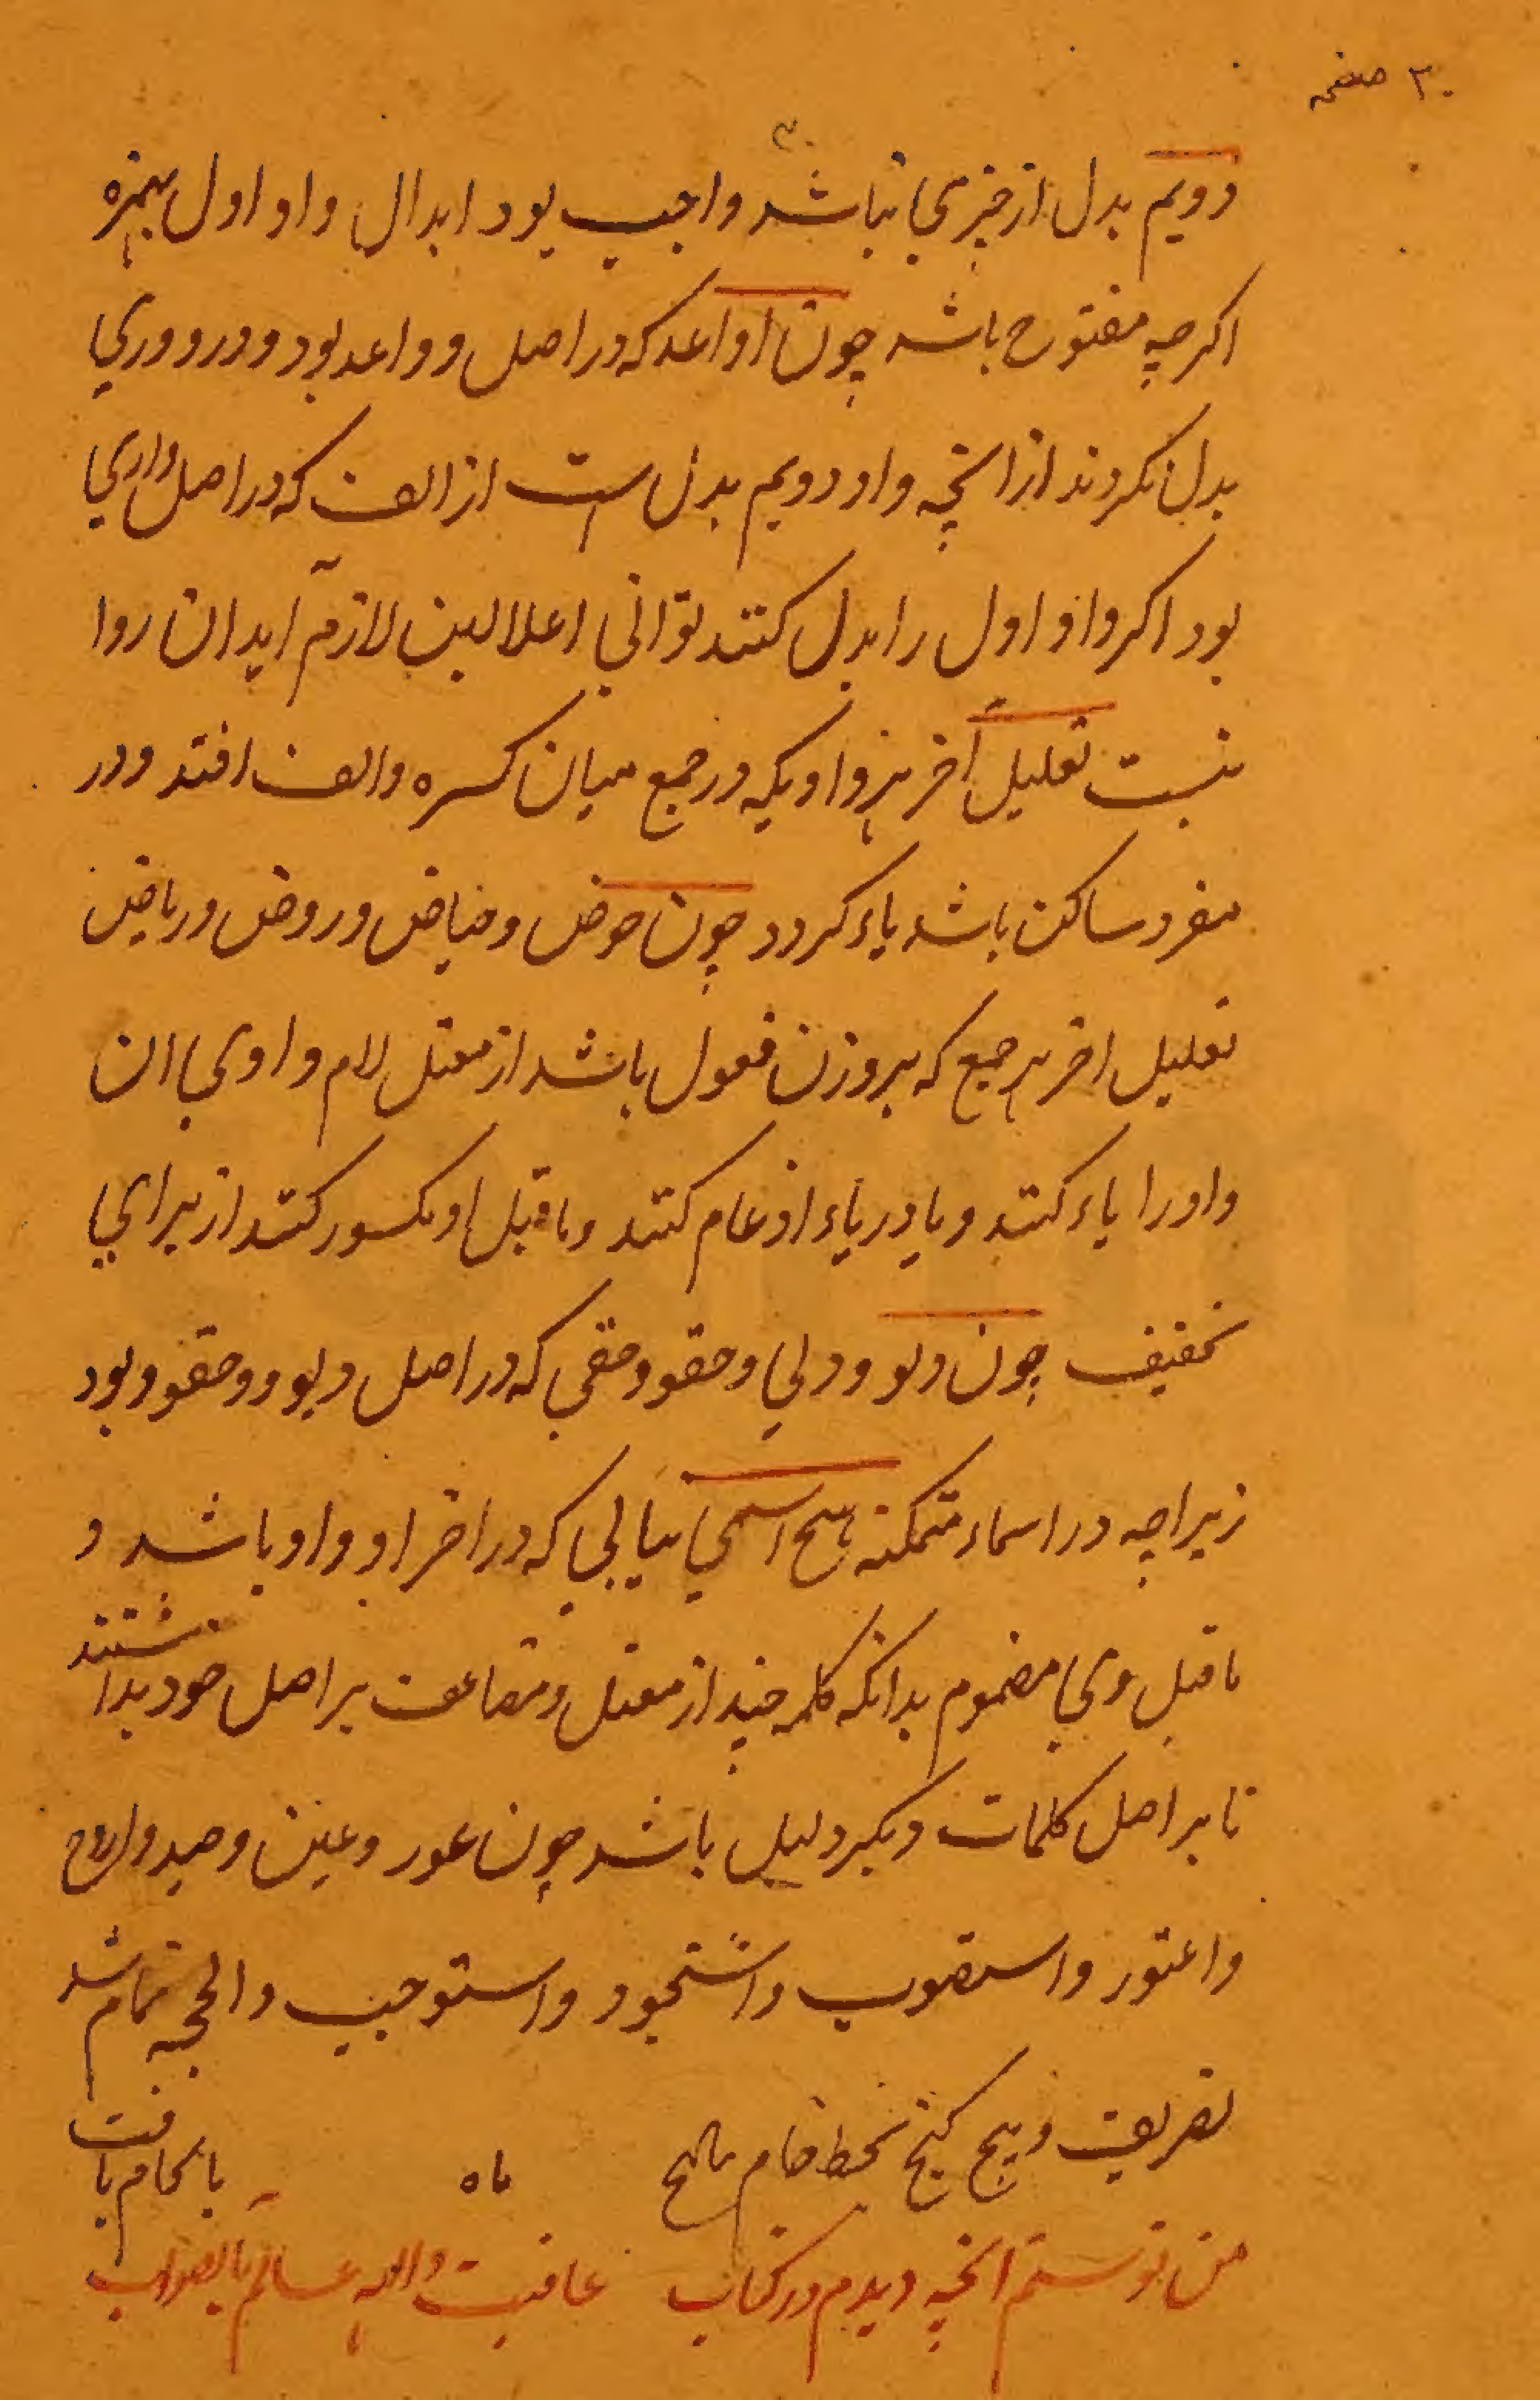 ۳۰ صفحه
۳۰
دویم بدل از چیزی نباشد واجب بود ابدال واو اول بهمزه
اکرچه مفتوح باشد چون اواعد که در اصل وواعد بود و در ووری
بدل نکردند از انچه واو دویم بدل ست از الف که در اصل واری
بود اکر واو اول را بدل کنند توالی اعلالین لازم آید ان روا
نیست تعلیل آخر هر واویکه در جمع میان کسره والف افتد ودر
مفرد ساکن باشد یاء کردد چون حوض وحیاض وروض وریاض
تعلیل اخر هر جمع که بروزن فعول باشد از معتل لام واوی ان
واو را یاء کنند ویا در یاء ادغام کنند وماقبل او مکسور کنند از برای
تخفیف چون دلو ودلی وحقو وحقی که در اصل دلوو وحقوو بود
زیراچه در اسماء متمکنه هیچ اسمی نیابی که در اخر او واو باشد و
ماقبل وی مضموم بدانکه کلمه چند از معتل ومضاعف بر اصل خود بداشتند
تا بر اصل کلمات دیکر دلیل باشد چون عور وعین وصید واروح
واعتور واستصوب واستحوذ واستوجب والحجه تمام شد
تصریف بخط خام ماه
من نوشتم انچه دیدم در کتاب عاقبت والله عالم بالصواب